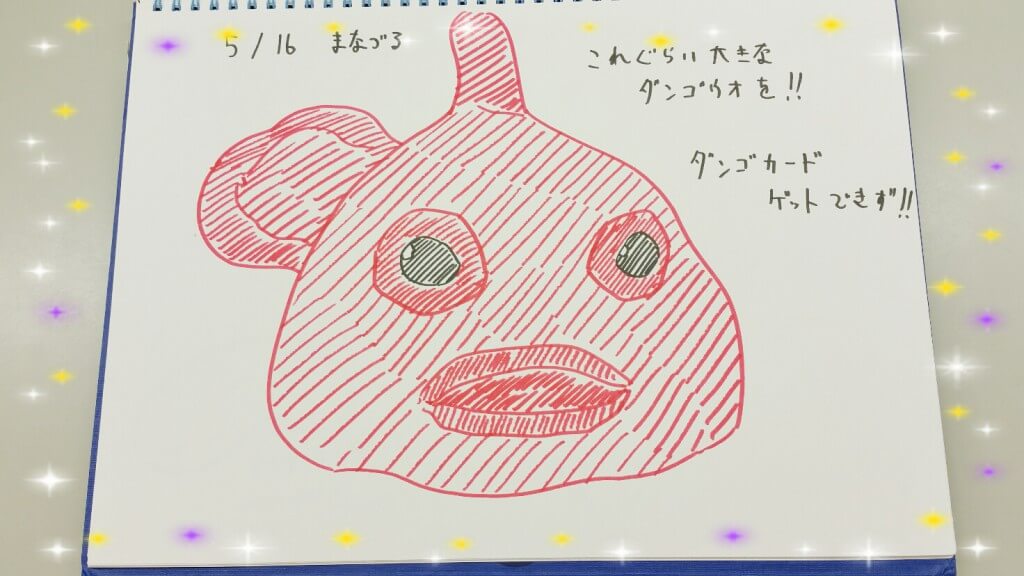 5/16 まなづる
これぐらい大きな
ダンゴウオを!!
ダンゴカード
ゲットできず!!